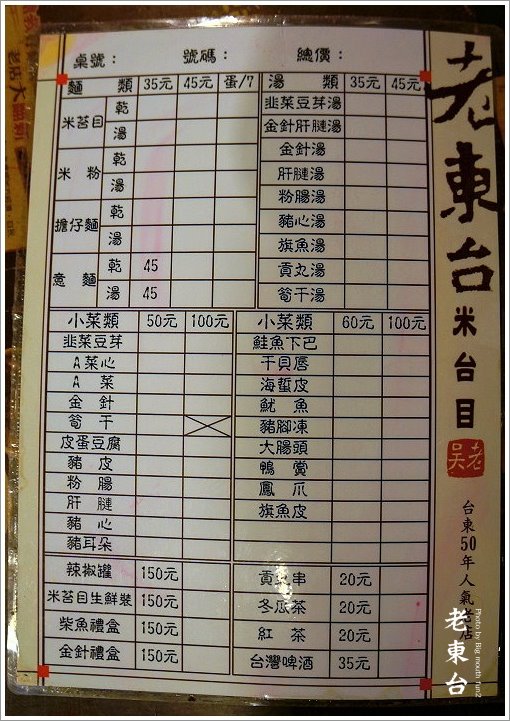 桌號： 號碼： 總價：
麵類 35元 45元 蛋/7 湯類 35元 45元
米苔目 乾
湯
米粉 乾
湯
擔仔麵 乾
湯
意麵 乾 45
湯 45
韭菜豆芽湯
金針肝腱湯
金針湯
肝腱湯
粉腸湯
豬心湯
旗魚湯
貢丸湯
筍干湯
小菜類 50元 100元
韭菜豆芽
A菜心
A菜
金針
筍干
皮蛋豆腐
豬皮
粉腸
肝腱
豬心
豬耳朵
小菜類 60元 100元
鮭魚下巴
干貝唇
海蜇皮
魷魚
豬腳凍
大腸頭
鴨賞
鳳爪
旗魚皮
辣椒罐 150元
米苔目生鮮裝 150元
柴魚禮盒 150元
金針禮盒 150元
貢丸串 20元
冬瓜茶 20元
紅茶 20元
台灣啤酒 35元
老東台
米台目
老吳
台東50年人氣老店
老東台
Photo by Big mouth run2